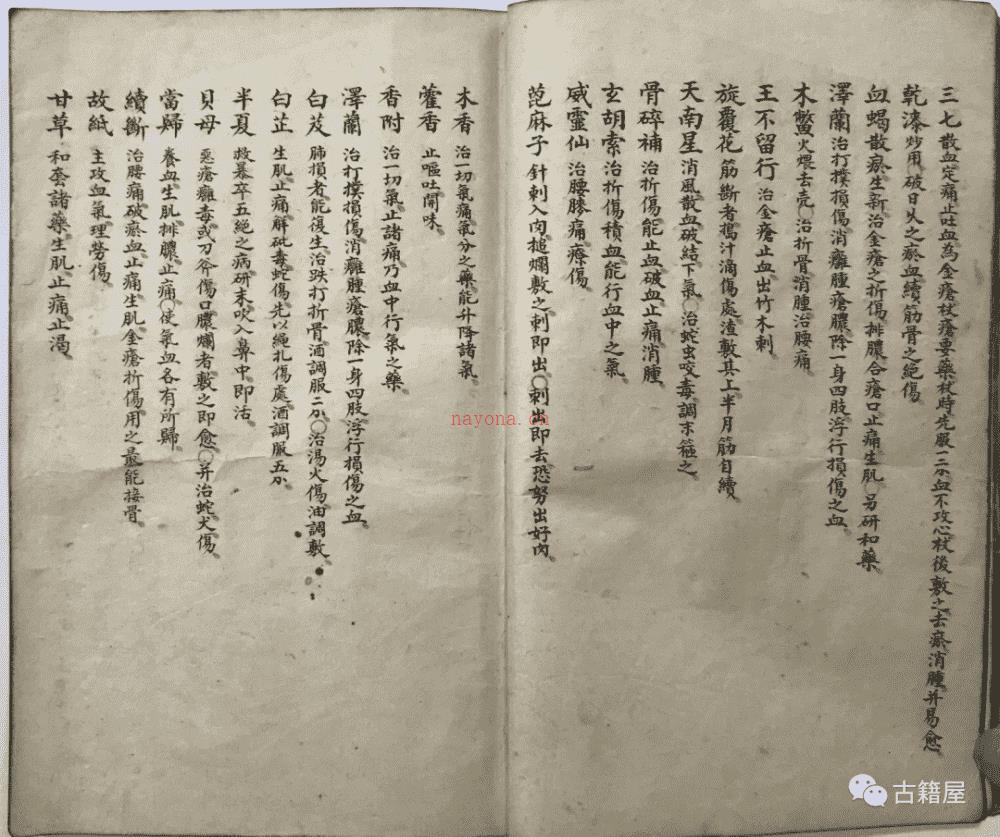 三七 散血定痛止吐血為金瘡杖瘡要藥杖時先服一二分血不攻心杖後敷之去瘀消腫并易愈
乾漆 炒用破日久之瘀血續筋骨之絕傷
血蝎 散瘀生新治金瘡之折傷排膿合瘡口止痛生肌〇另研和藥
澤蘭 治打撲損傷消癰腫瘡膿除一身四肢浮行損傷之血
木鱉 火煨去壳〇治折骨消腫治腰痛
王不留行 治金瘡止血出竹木刺
旋覆花 筋斷者搗汁滴傷處渣敷其上半月筋自續
天南星 消風散血破結下氣〇治蛇虫咬毒調末箍之
骨碎補 治折傷能止血破血止痛消腫
玄胡索 治折傷積血能行血中之氣
威靈仙 治腰膝痛療傷
萞麻子 針刺入肉搥爛敷之刺即出〇刺出即去恐努出好肉
木香 治一切氣痛氣分之藥能升降諸氣
藿香 止嘔吐開味
香附 治一切氣止諸痛乃血中行氣之藥
澤蘭 治打撲損傷消癰腫瘡膿除一身四肢浮行損傷之血
白芨 肺損者能復生治跌打折骨酒調服二分〇治湯火傷油調敷
白芷 生肌止痛解砒毒蛇傷先以繩扎傷處酒調服五分
半夏 救暴卒五絕之病研末吹入鼻中即活
貝母 惡瘡癰毒或刀斧傷口膿爛者敷之即愈〇并治蛇犬傷
當歸 養血生肌排膿止痛〇使氣血各有所歸
續斷 治腰痛破瘀血止痛生肌金瘡折傷用之最能接骨
故紙 主攻血氣理勞傷
甘草 和套諸藥生肌止痛止渴
nayona.cn
古籍屋